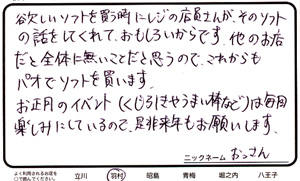 欲しいソフトを買う時にレジの店員さんが、そのソフト
の話をしてくれて、おもしろいからです。他のお店
だと全体に無いことだと思うので、これからも
パオでソフトを買います。
お正月のイベント(くじらきやうまい棒など)は毎回
楽しみにしているので、是非来年もお願いします。
ニックネーム おっさん
よく利用されるお店を
○で囲んでください。 立川 羽村 昭島 青梅 堀之内 八王子